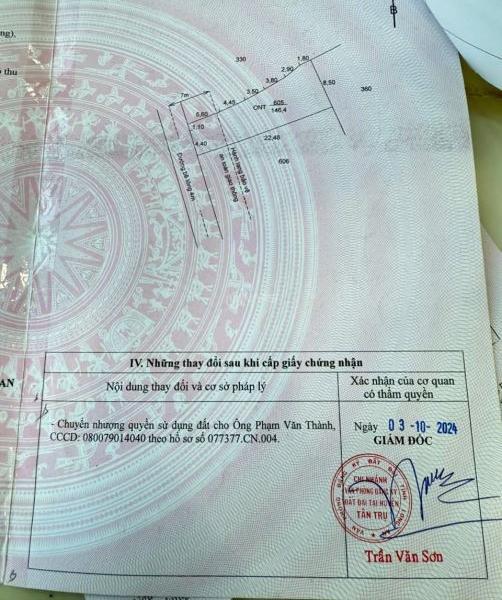 ng),
thu
B
330
1,80
2,90
3,80
3,50
4,45
6,60
1,10
4,40
7m
ONT 605
146,4
8,50
360
22,48
606
Đường bê tông 4m
Hành lang bảo vệ
an toàn giao thông
AN
IV. Những thay đổi sau khi cấp giấy chứng nhận
Nội dung thay đổi và cơ sở pháp lý
Xác nhận của cơ quan
có thẩm quyền
- Chuyển nhượng quyền sử dụng đất cho Ông Phạm Văn Thành,
CCCD: 080079014040 theo hồ sơ số 077377.CN.004.
Ngày 03-10-2024
GIÁM ĐỐC
VĂN PHÒNG ĐĂNG KÝ ĐẤT ĐAI TỈNH LONG AN
CHI NHÁNH
VĂN PHÒNG ĐĂNG KÝ
ĐẤT ĐAI TẠI HUYỆN
TÂN TRỤ
Trần Văn Sơn